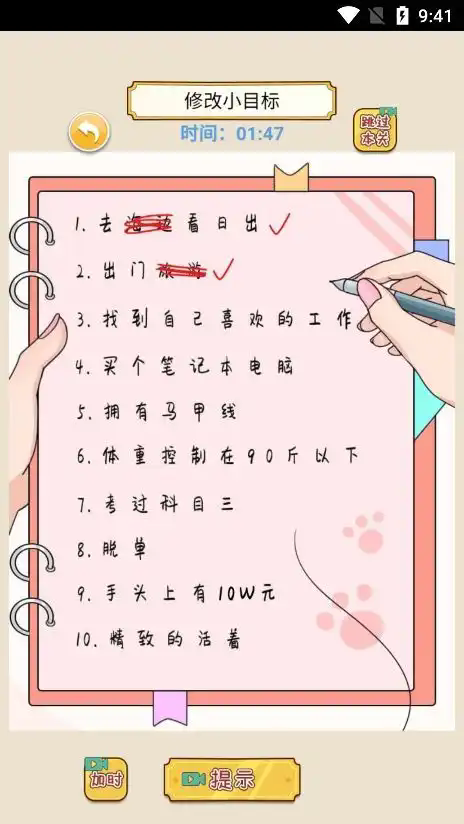 9:41
修改小目标
时间：01:47
跳过
本关
1. 去海边看日出
2. 出门旅游
3. 找到自己喜欢的工作
4. 买个笔记本电脑
5. 拥有马甲线
6. 体重控制在90斤以下
7. 考过科目三
8. 脱单
9. 手头上有10W元
10. 精致的活着
加时
提示